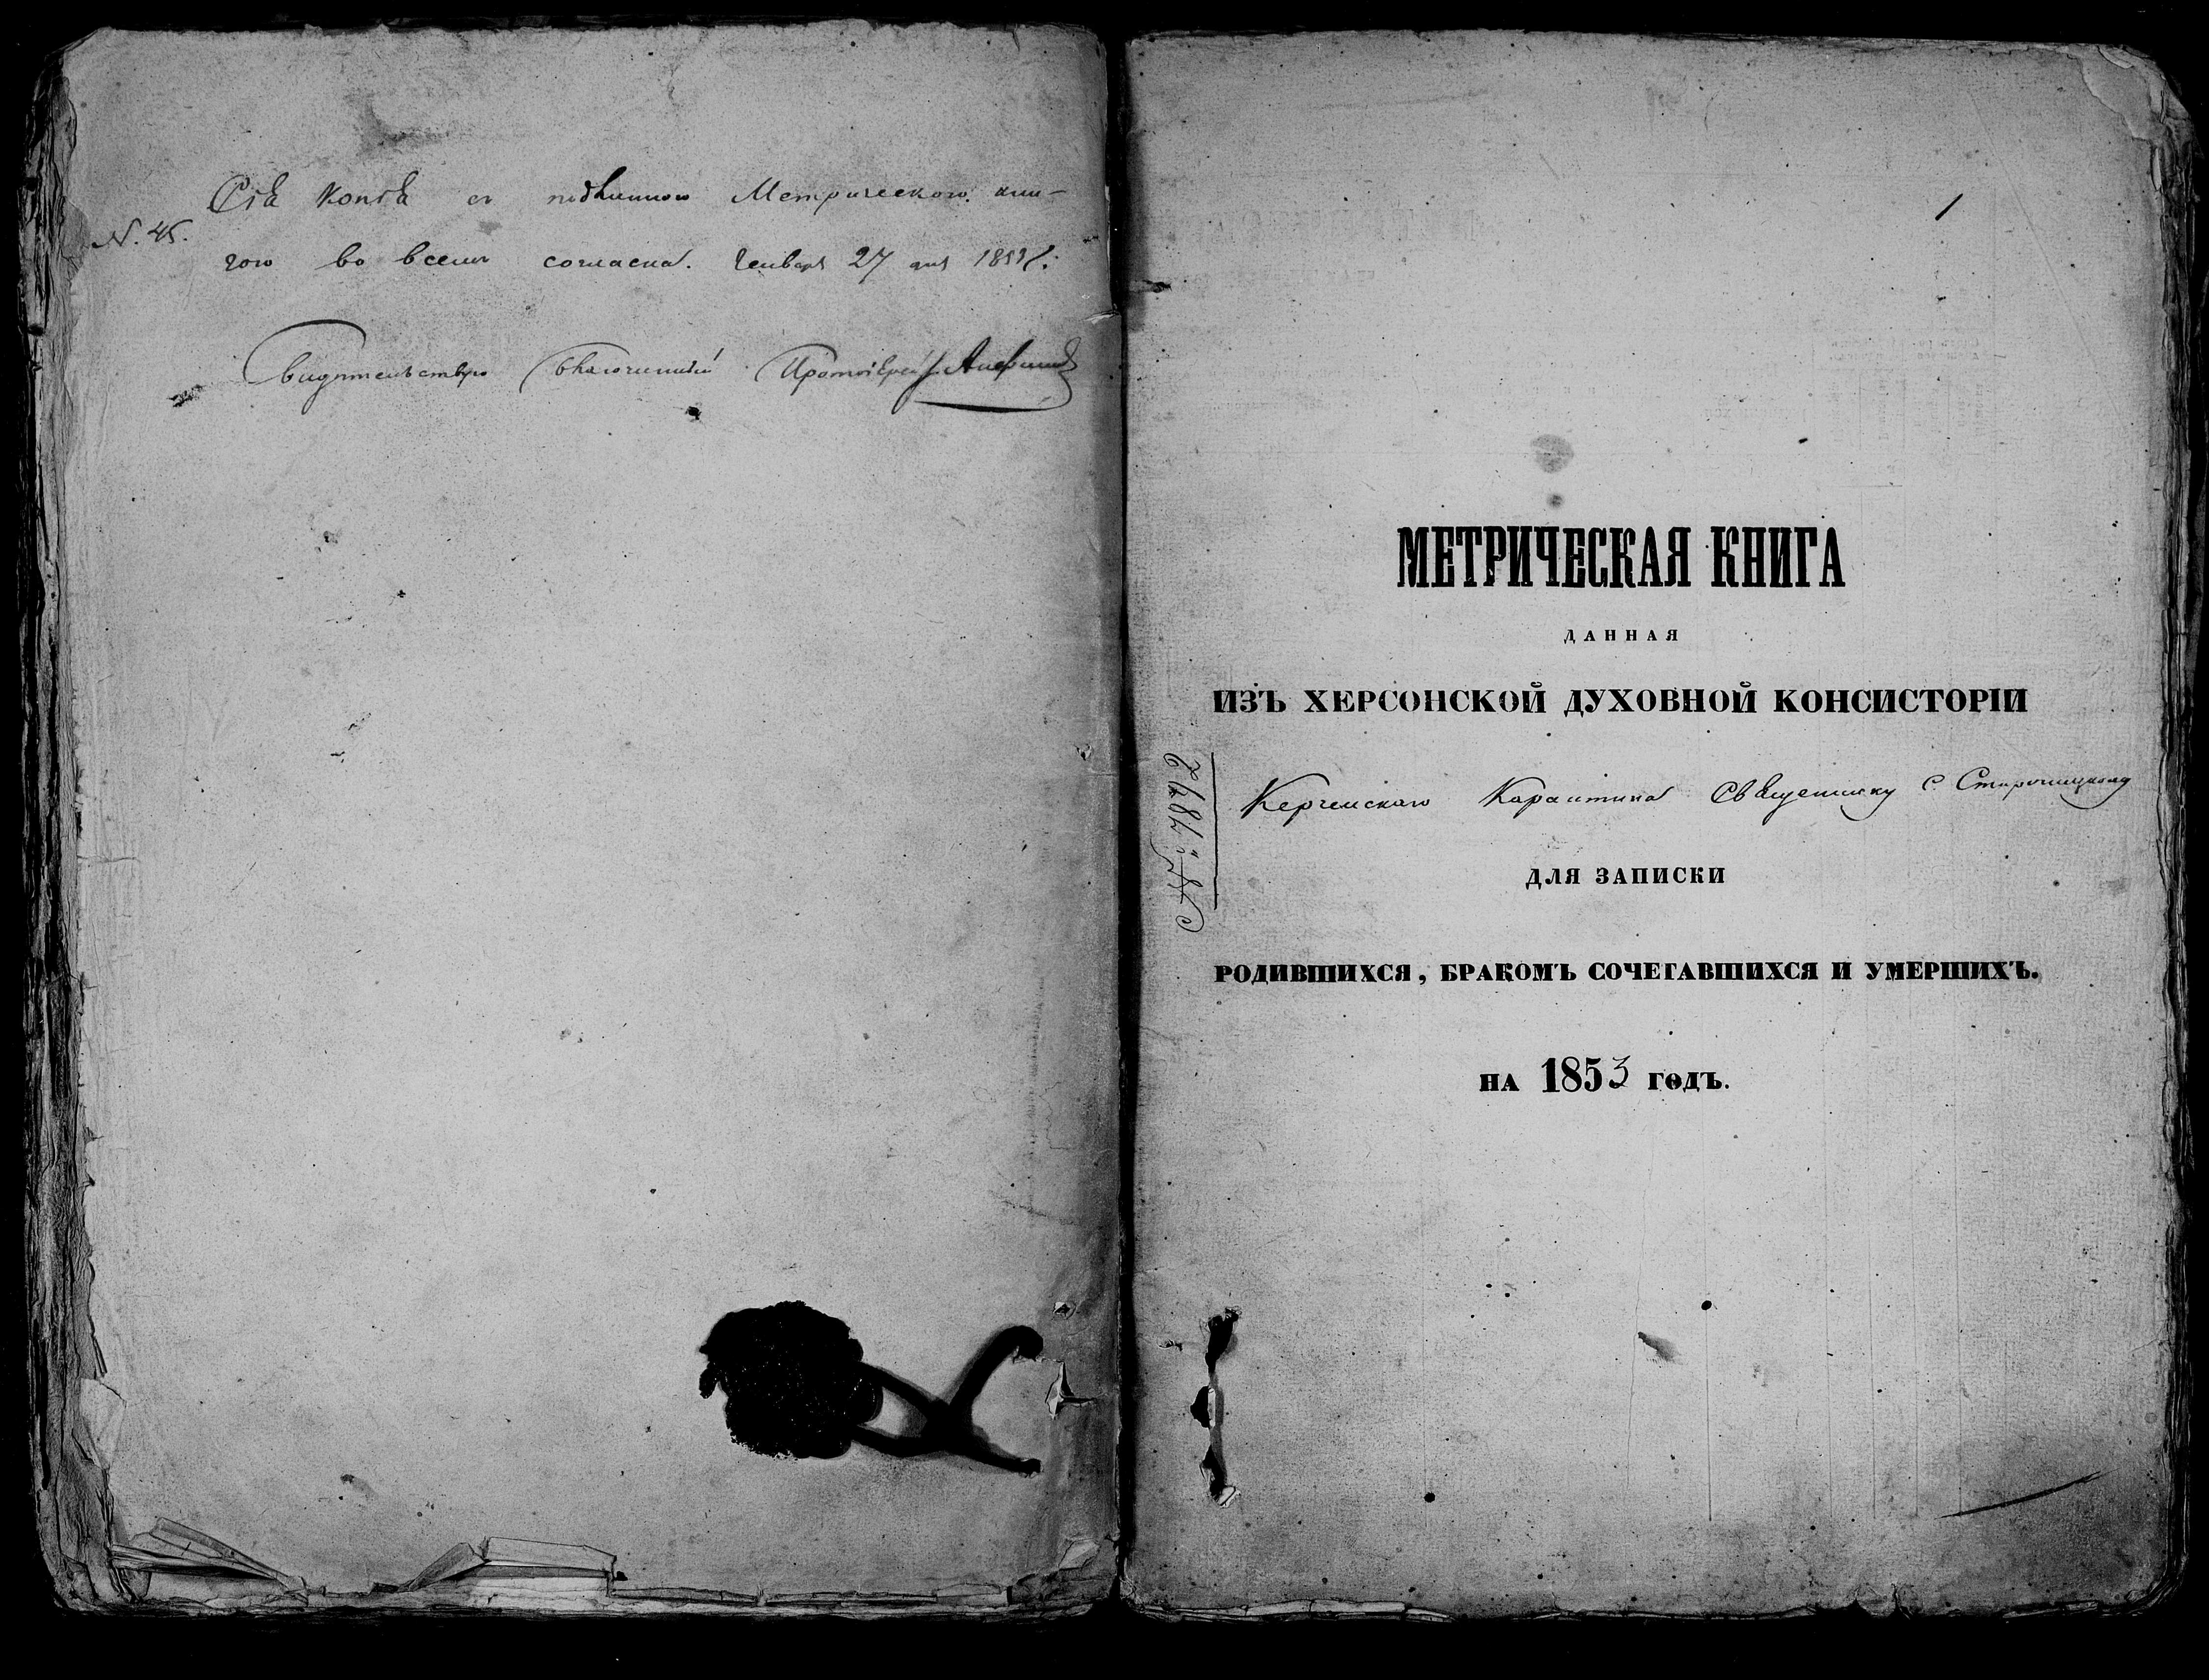 Сія копія съ подлинною Метрическою кни-
N. 45.
гою во всемъ согласна. Генваря 27 дня
Свидѣтельствую Благочинный Протоіерей
1
МЕТРИЧЕСКАЯ КНИГА
ДАННАЯ
ИЗЪ ХЕРСОНСКОЙ ДУХОВНОЙ КОНСИСТОРІИ
Керченскаго Карантина Священнику С
№: 7892
ДЛЯ ЗАПИСКИ
РОДИВШИХСЯ, БРАКОМЪ СОЧЕТАВШИХСЯ И УМЕРШИХЪ.
НА 1853 ГОДЪ.